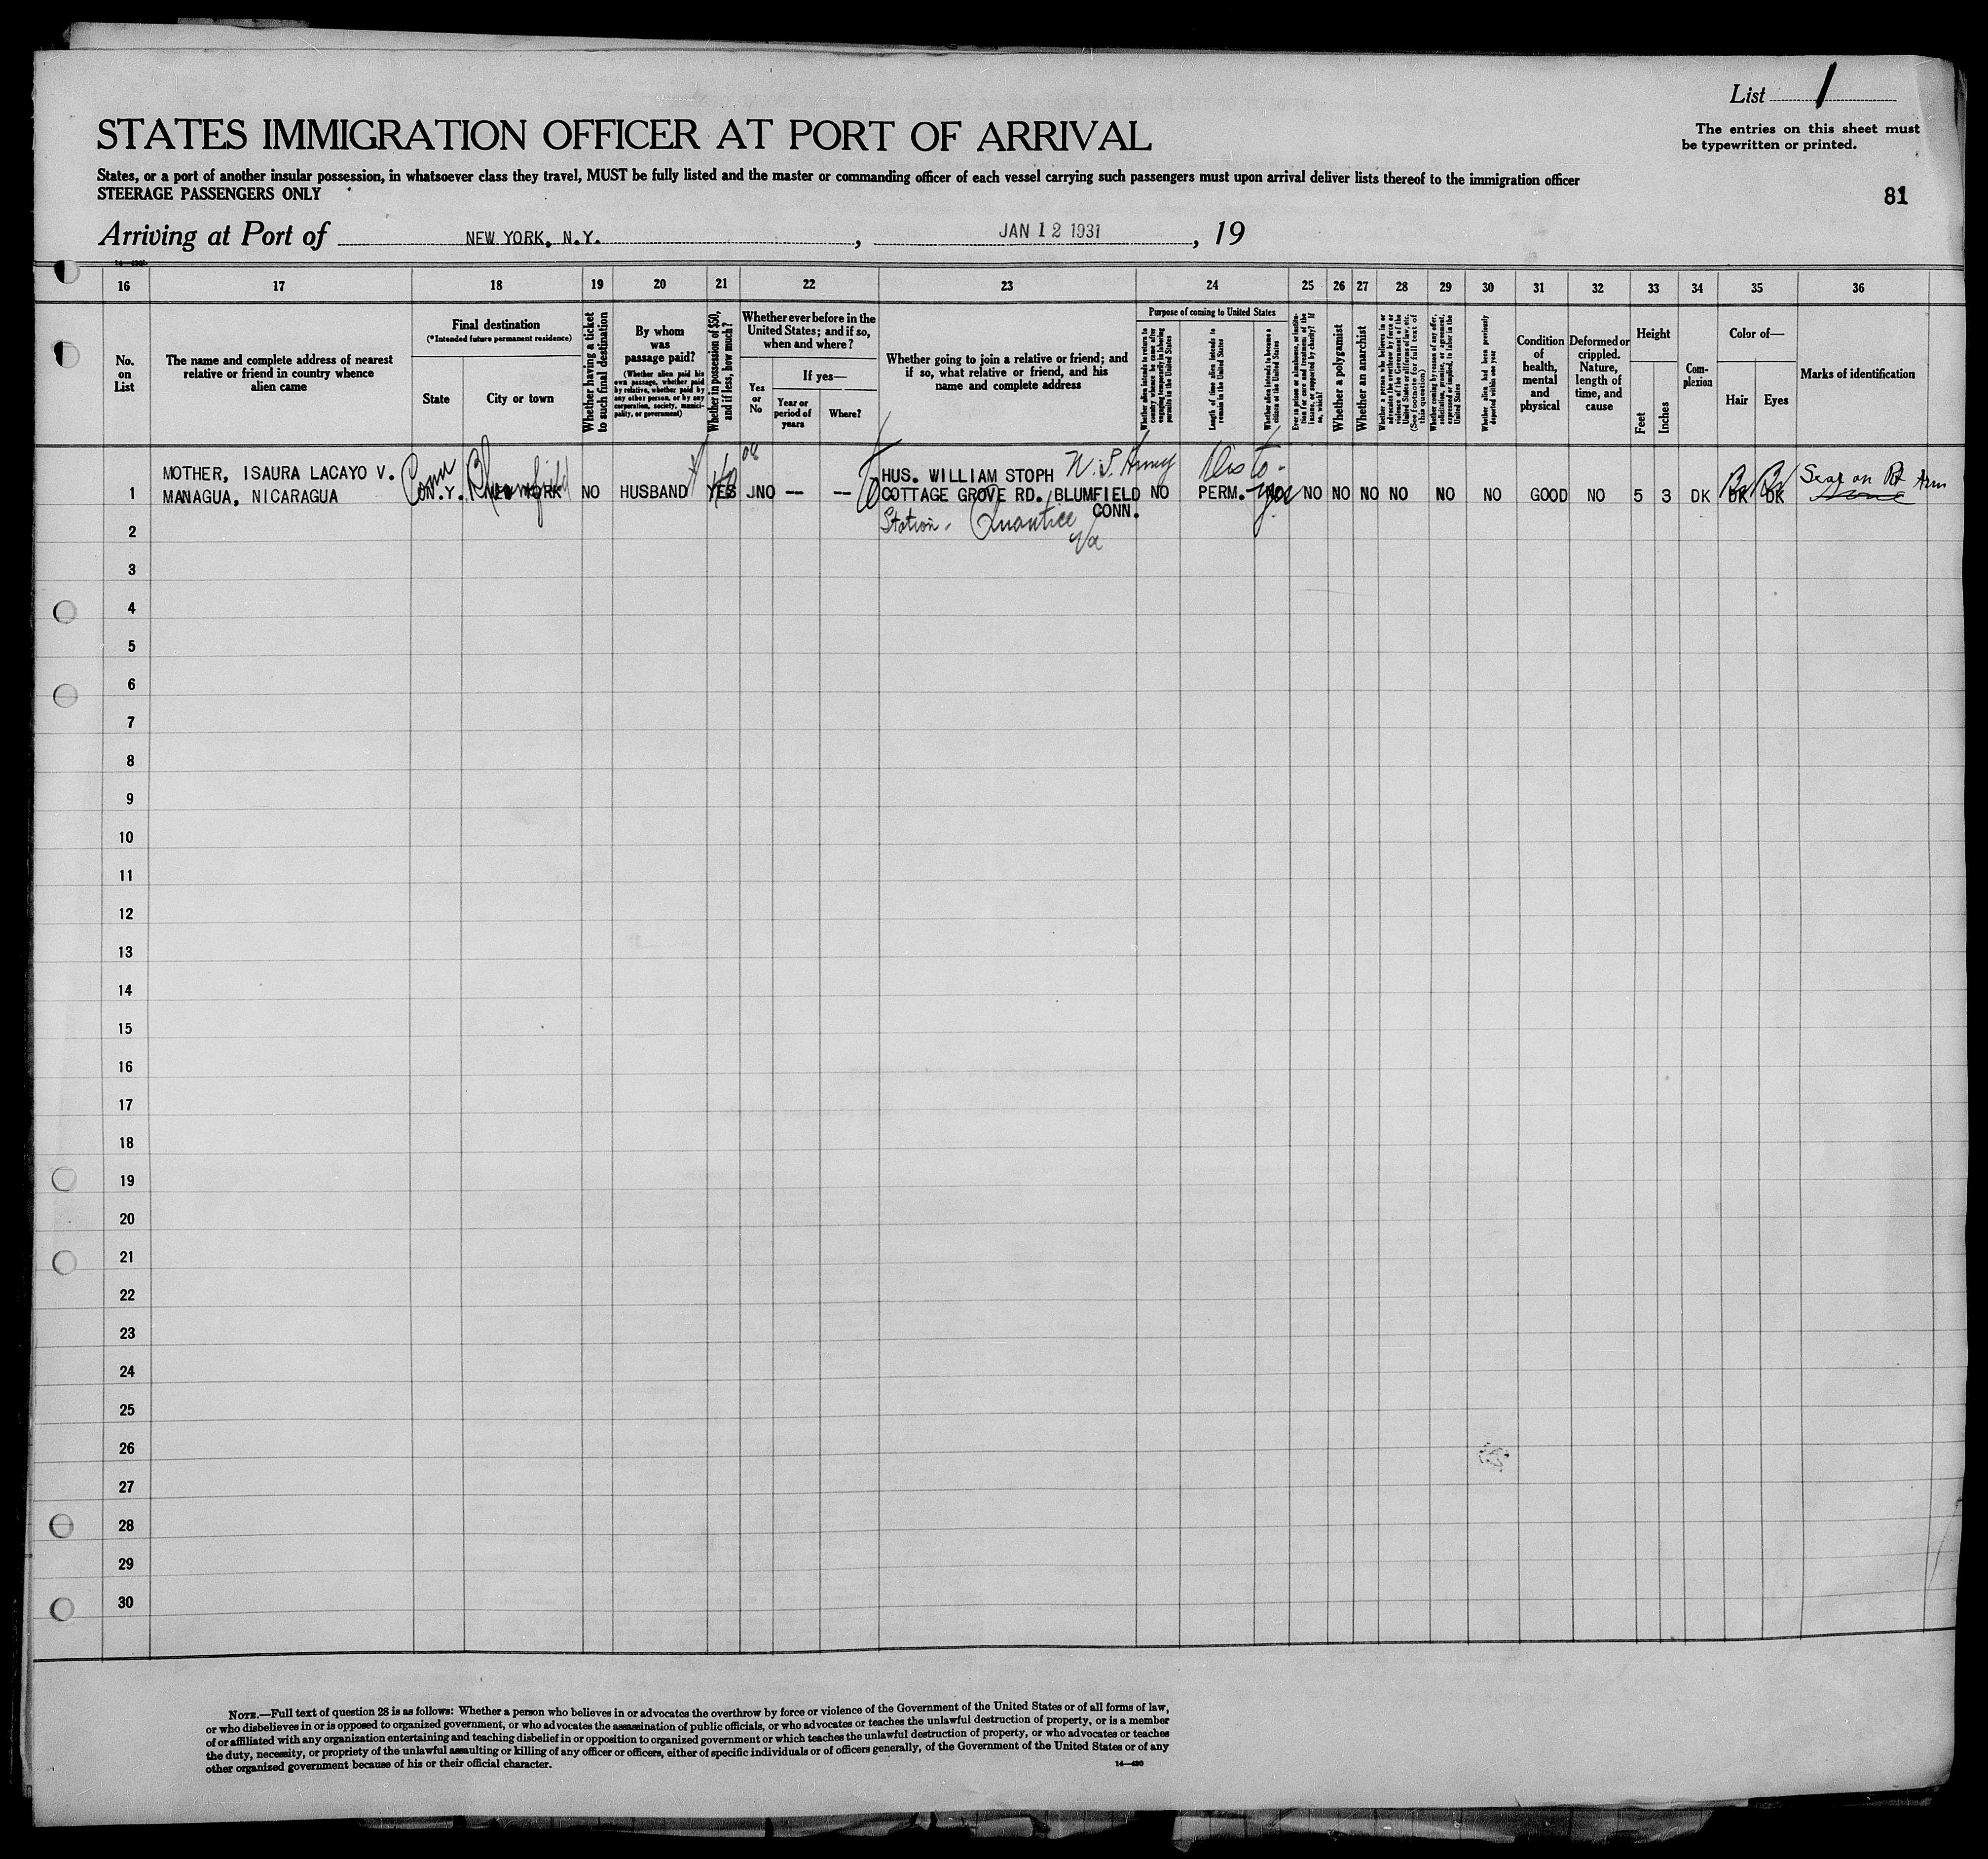 List 1
The entries on this sheet must
be typewritten or printed.
STATES IMMIGRATION OFFICER AT PORT OF ARRIVAL
States, or a port of another insular possession, in whatsoever class they travel, MUST be fully listed and the master or commanding officer of each vessel carrying such passengers must upon arrival deliver lists thereof to the immigration officer
STEERAGE PASSENGERS ONLY
81
Arriving at Port of NEW YORK, N.Y. , JAN 12 1931 , 19
16 17 18 19 20 21 22 23 24 25 26 27 28 29 30 31 32 33 34 35 36
No. on List
The name and complete address of nearest
relative or friend in country whence
alien came
Final destination
(*Intended future permanent residence)
State
City or town
Whether having a ticket
to such final destination
By whom
was
passage paid?
(Whether alien paid his
own passage, whether paid
by relative, whether paid by
any other person, or by any
corporation, society, munici-
pality, or government)
Whether in possession of $50,
and if less, how much?
Whether ever before in the
United States; and if so,
when and where?
Yes
or
No
If yes—
Year or
period of
years
Where?
Whether going to join a relative or friend; and
if so, what relative or friend, and his
name and complete address
Purpose of coming to United States
Whether alien intends to return to
country whence he came after
engaging temporarily in laboring
pursuits in the United States
Length of time alien intends to
remain in the United States
Whether alien intends to become a
citizen of the United States
Ever in prison or almshouse, or institu-
tion for care and treatment of the
insane, or supported by charity? If
so, which?
Whether a polygamist
Whether an anarchist
Whether a person who believes in or
advocates the overthrow by force or
violence of the Government of the
United States or all forms of law, etc.
(See footnote for full text of
this question)
Whether coming by reason of any offer,
solicitation, promise, or agreement,
expressed or implied, to labor in the
United States
Whether alien had been previously
deported within one year
Condition
of
health,
mental
and
physical
Deformed or
crippled.
Nature,
length of
time, and
cause
Height
Feet
Inches
Com-
plexion
Color of—
Hair
Eyes
Marks of identification
1 MOTHER, ISAURA LACAYO V.
MANAGUA, NICARAGUA
Conn
N.Y.
Bloomfield
NEW YORK
NO
HUSBAND
YES
NO
—
—
HUS. WILLIAM STOPH
COTTAGE GROVE RD. BLUMFIELD
CONN.
Station. Quantico
Va
NO
PERM.
yes
NO NO NO NO NO NO GOOD NO 5 3 DK
Br
DK
Br
DK
Scar on Rt Arm
2
3
4
5
6
7
8
9
10
11
12
13
14
15
16
17
18
19
20
21
22
23
24
25
26
27
28
29
30
NOTE.—Full text of question 28 is as follows: Whether a person who believes in or advocates the overthrow by force or violence of the Government of the United States or of all forms of law,
or who disbelieves in or is opposed to organized government, or who advocates the assassination of public officials, or who advocates or teaches the unlawful destruction of property, or is a member
of or affiliated with any organization entertaining and teaching disbelief in or opposition to organized government or which teaches the unlawful destruction of property, or who advocates or teaches
the duty, necessity, or propriety of the unlawful assaulting or killing of any officer or officers, either of specific individuals or of officers generally, of the Government of the United States or of any
other organized government because of his or their official character.
14—430